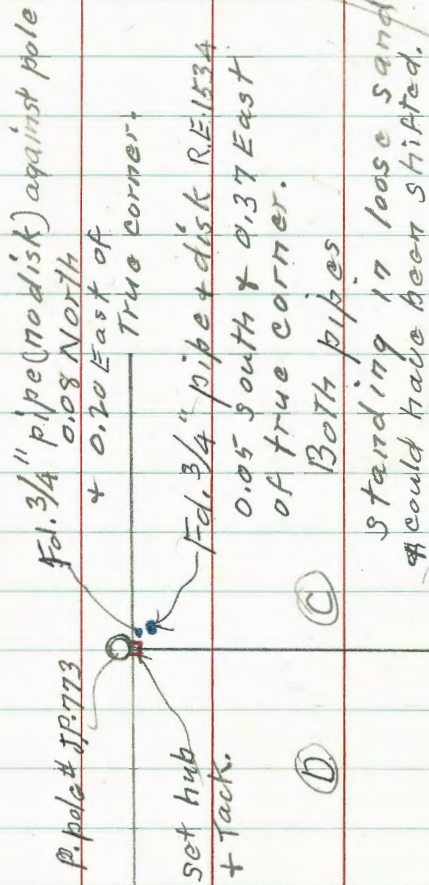 P. pole # JP.773
Fd. 3/4" pipe (no disk) against pole
0.08 North
+ 0.20 East of
True corner.
Set hub
+ Tack.
Fd. 3/4" pipe + disk R.E. 1534
0.05 South + 0.37 East
of true corner.
Both pipes
standing in loose sand
& could have been shifted.
D
C